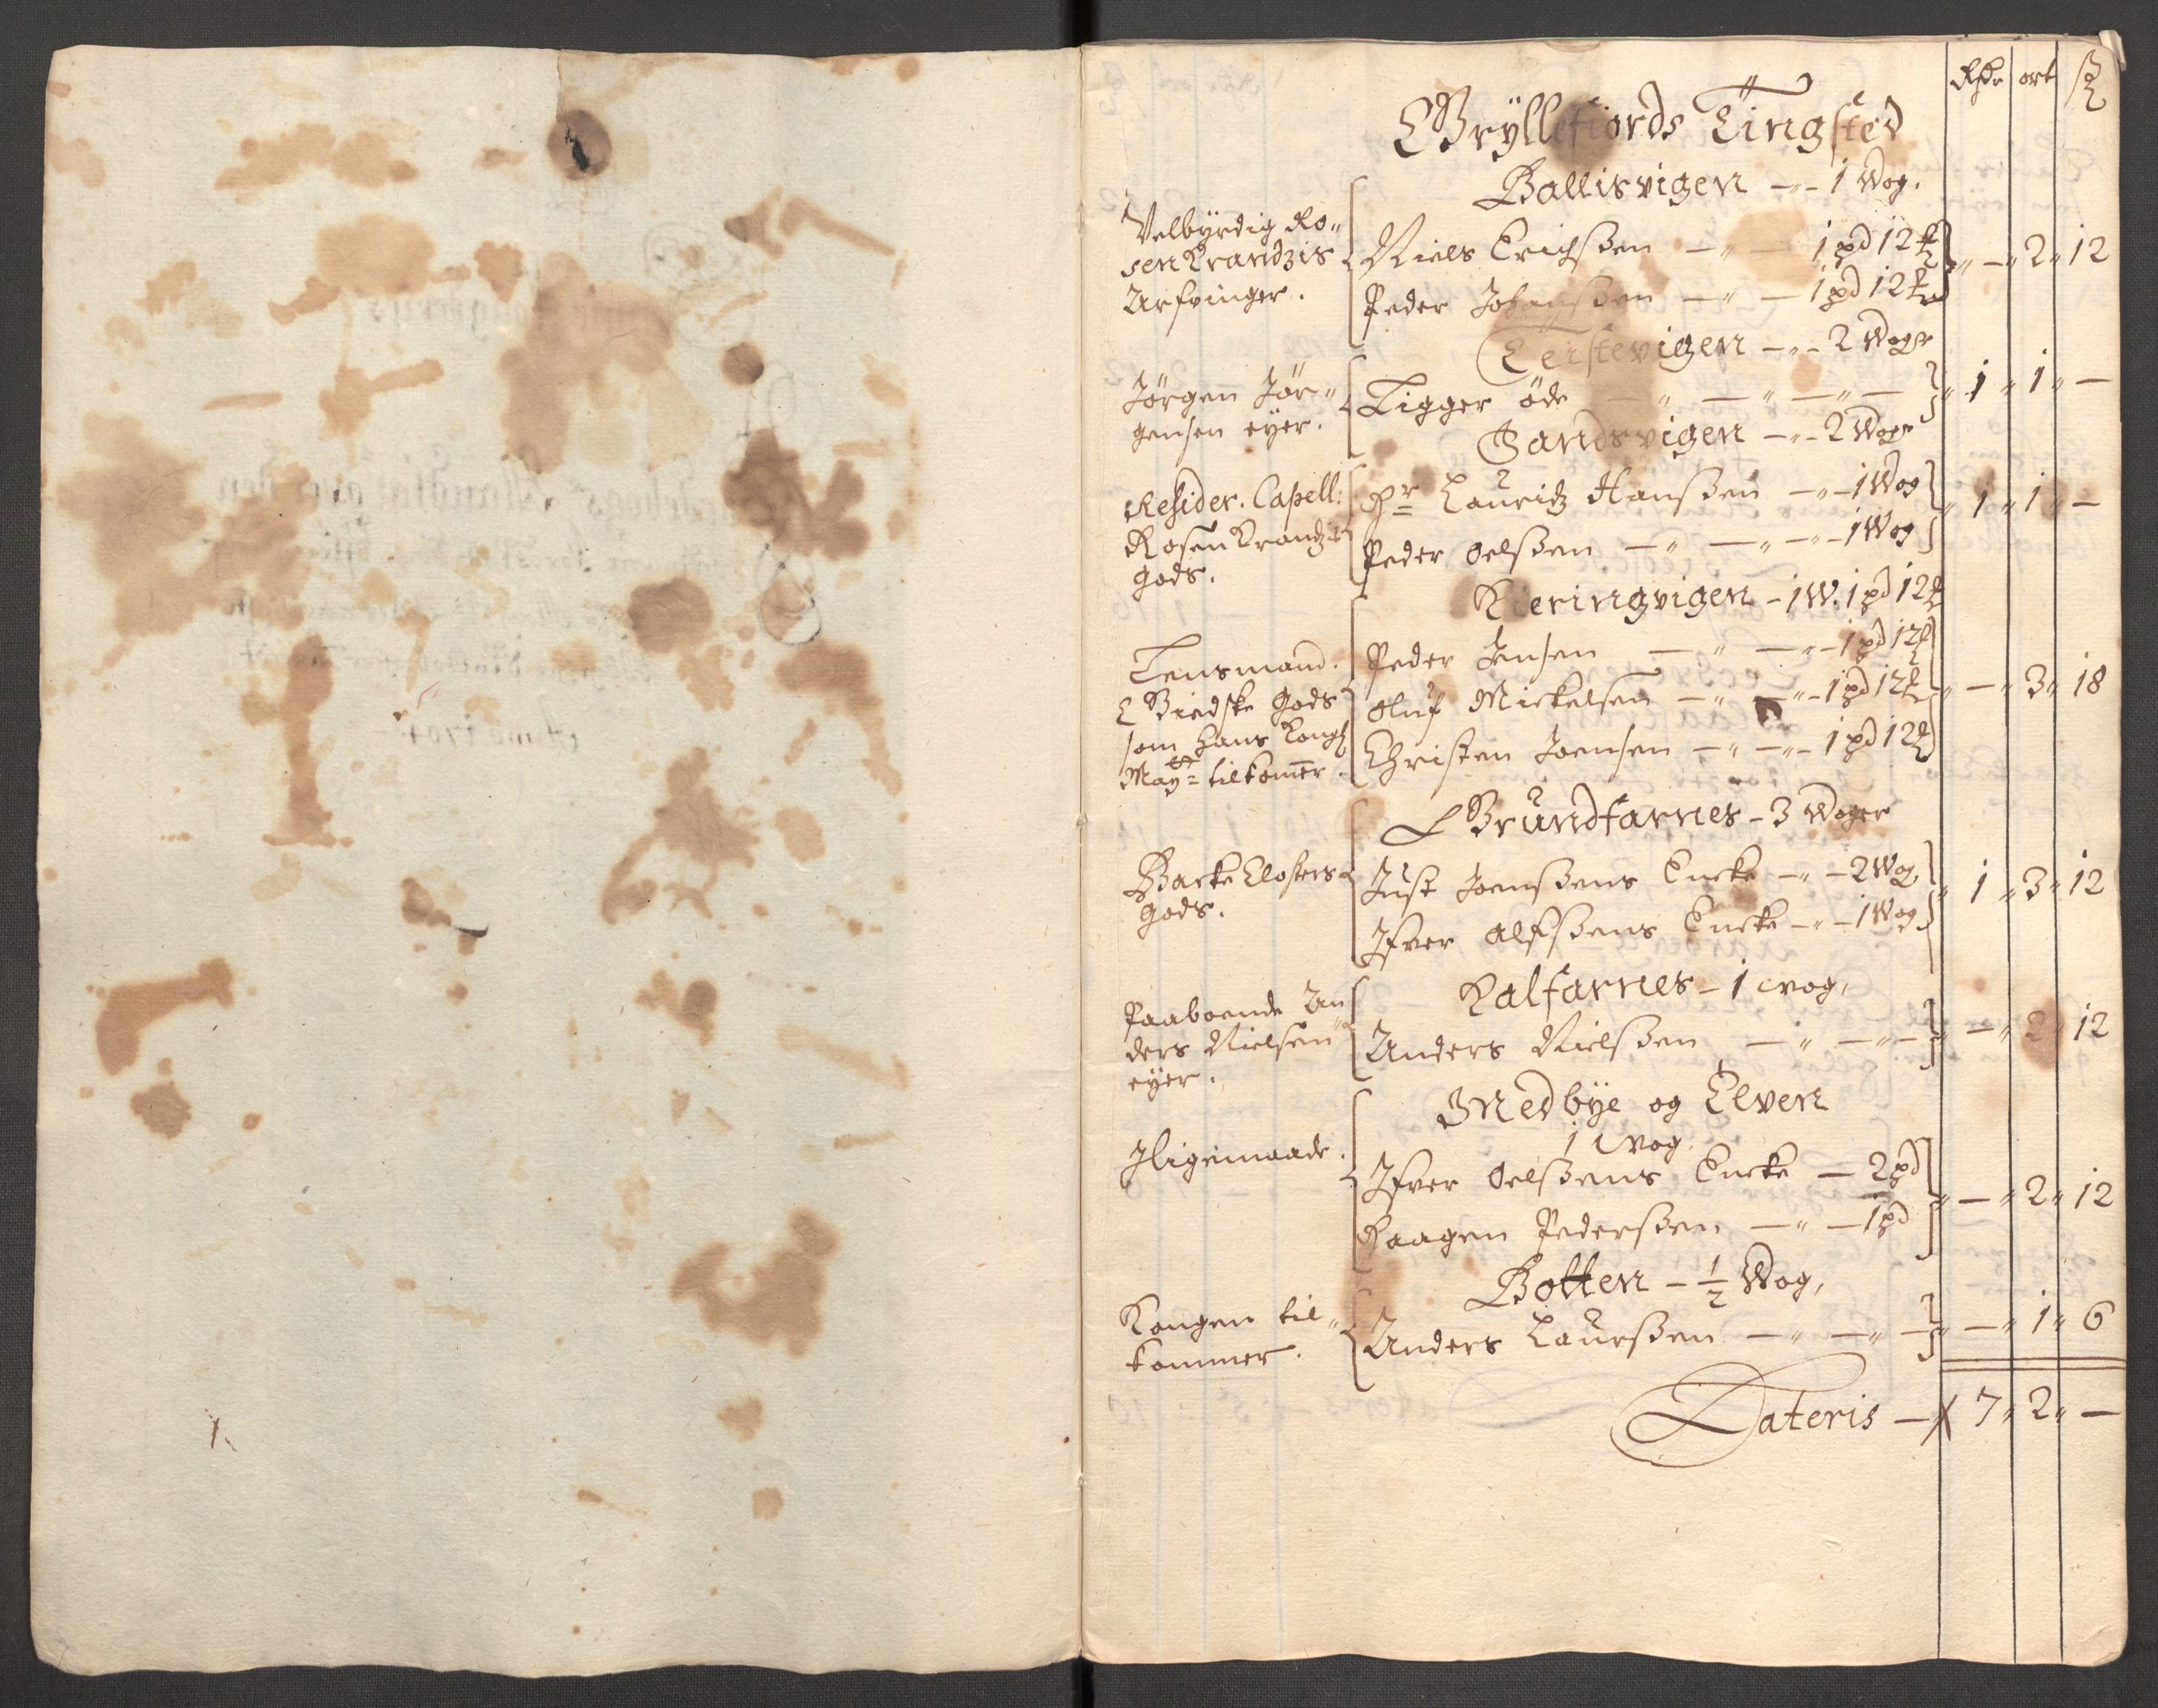 Rdr ort ß
Gryllefiords Tingsted
Ballisvigen -„- 1 Wog.
Velbyrdig Ro„
senkrandzis
Arfvinger.
Niels Erichßen -„- 1 pd 12 „ - „ 2 „ 12
Peder Johanßen -„- 1 pd 12
Teistevigen -„- 2 Woger
Jørgen Jør„
gensen eyer.
Ligger øde -„-„-„- „ 1 „ 1 „ -
Sandsvigen -„- 2 Woger
Resider. Capell:
Rosenkrandzis
Gods.
Hr Lauridz Hanßen -„- 1 Wog „ 1 „ 1 „ -
Peder Oelßen -„-„-„- 1 Wog
Kieringvigen - 1 W. 1 pd 12
Lensmand.
Giedske Gods
som Hans Kongl
Mayt tilkomer.
Peder Jensen -„-„- 1 pd 12
Oluf Mickelsen -„-„- 1 pd 12 „ - „ 3 „ 18
Christen Joensen -„-„- 1 pd 12
Grundfarnes - 3 Woger
Backe Closters
Gods.
Just Joenßens Encke -„- 2 Wog, „ 1 „ 3 „ 12
Ifver Olfßens Encke -„- 1 Wog
Kalfarnes - 1 Wog,
Paaboende An„
ders Nielsen
eyer.
Anders Nielßen -„-„- „ - „ 2 „ 12
Medbye og Elven
1 Wog
Jligemaade.
Ifver Oelßens Encke - 2 pd
Haagen Pederßen -„- 1 pd „ - „ 2 „ 12
Botten - 1/2 Wog,
Kongen til„
kommer.
Anders Laurßen -„-„- „ - „ 1 „ 6
Lateris - 7 „ 2 „ -